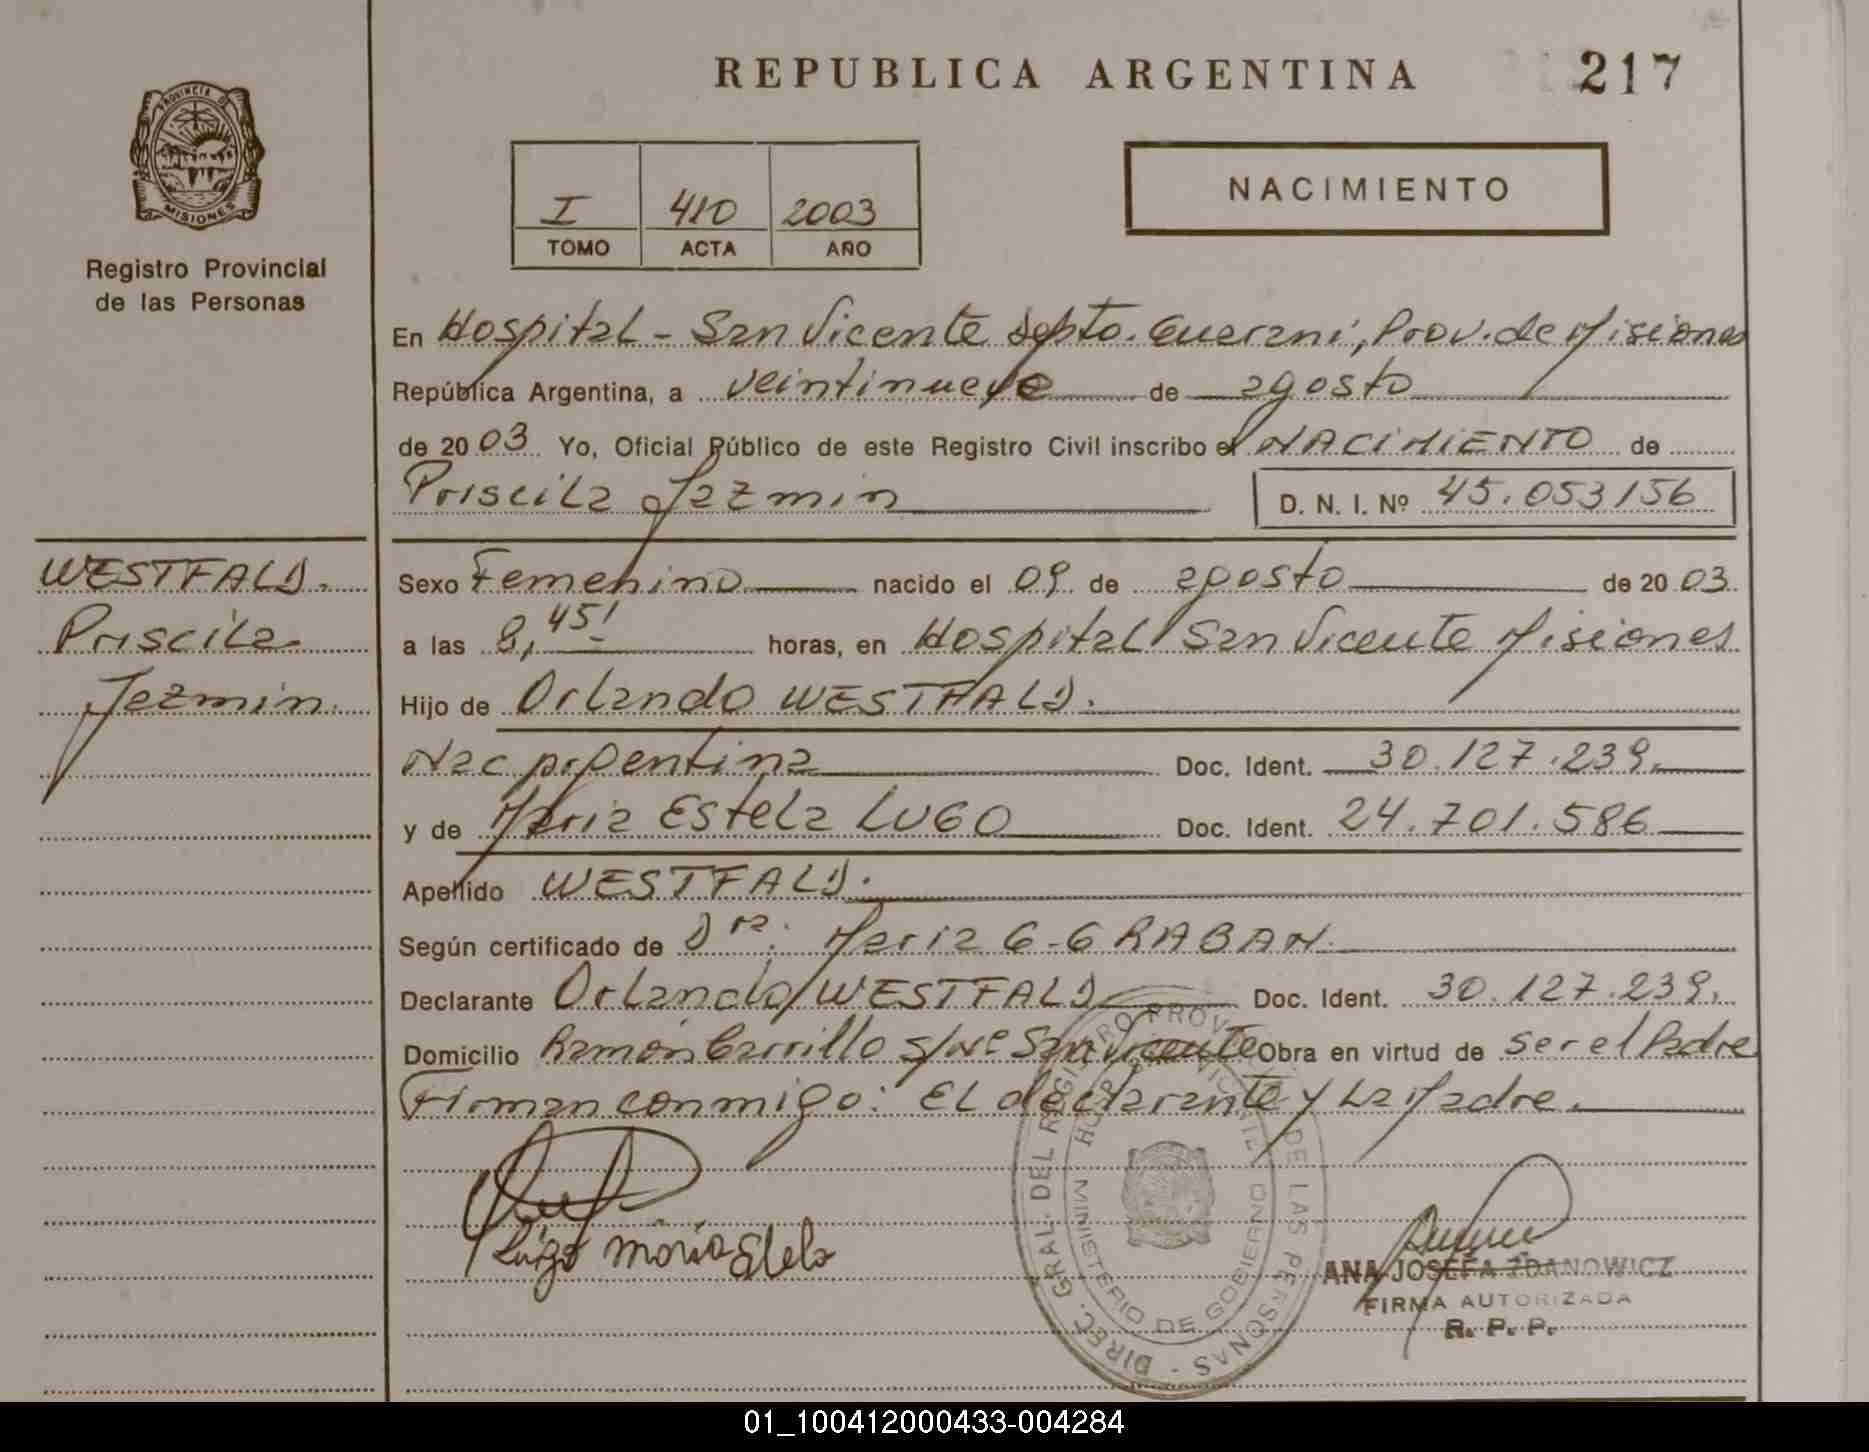 REPUBLICA ARGENTINA
217
PROVINCIA DE
MISIONES
Registro Provincial
de las Personas
I 410 2003
TOMO ACTA AÑO
NACIMIENTO
En Hospital - San Vicente Dpto. Guarani, Prov. de Misiones
República Argentina, a veintinueve de agosto
de 2003 Yo, Oficial Público de este Registro Civil inscribo el NACIMIENTO de
Priscila Jazmin D. N. I. Nº 45.053156
WESTFALD.
Priscila
Jazmin
Sexo Femenino nacido el 09 de agosto de 2003
a las 8,45' horas, en Hospital San Vicente Misiones
Hijo de Orlando WESTFALD.
Nac Argentina Doc. Ident. 30.127.239.
y de Maria Estela LUGO Doc. Ident. 24.701.586
Apellido WESTFALD.
Según certificado de Dra. Maria G. GRABAN.
Declarante Orlando WESTFALD Doc. Ident. 30.127.239.
Domicilio Ramón Carrillo s/Nº San Vicente Obra en virtud de ser el Padre
Firman conmigo: El declarante y La Madre.
Lugo Maria Estela
DIREC. GRAL. DEL REGISTRO PROVINCIAL DE LAS PERSONAS
MINISTERIO DE GOBIERNO
ANA JOSEFA ZDANOWICZ
FIRMA AUTORIZADA
R. P. P.
01_100412000433-004284